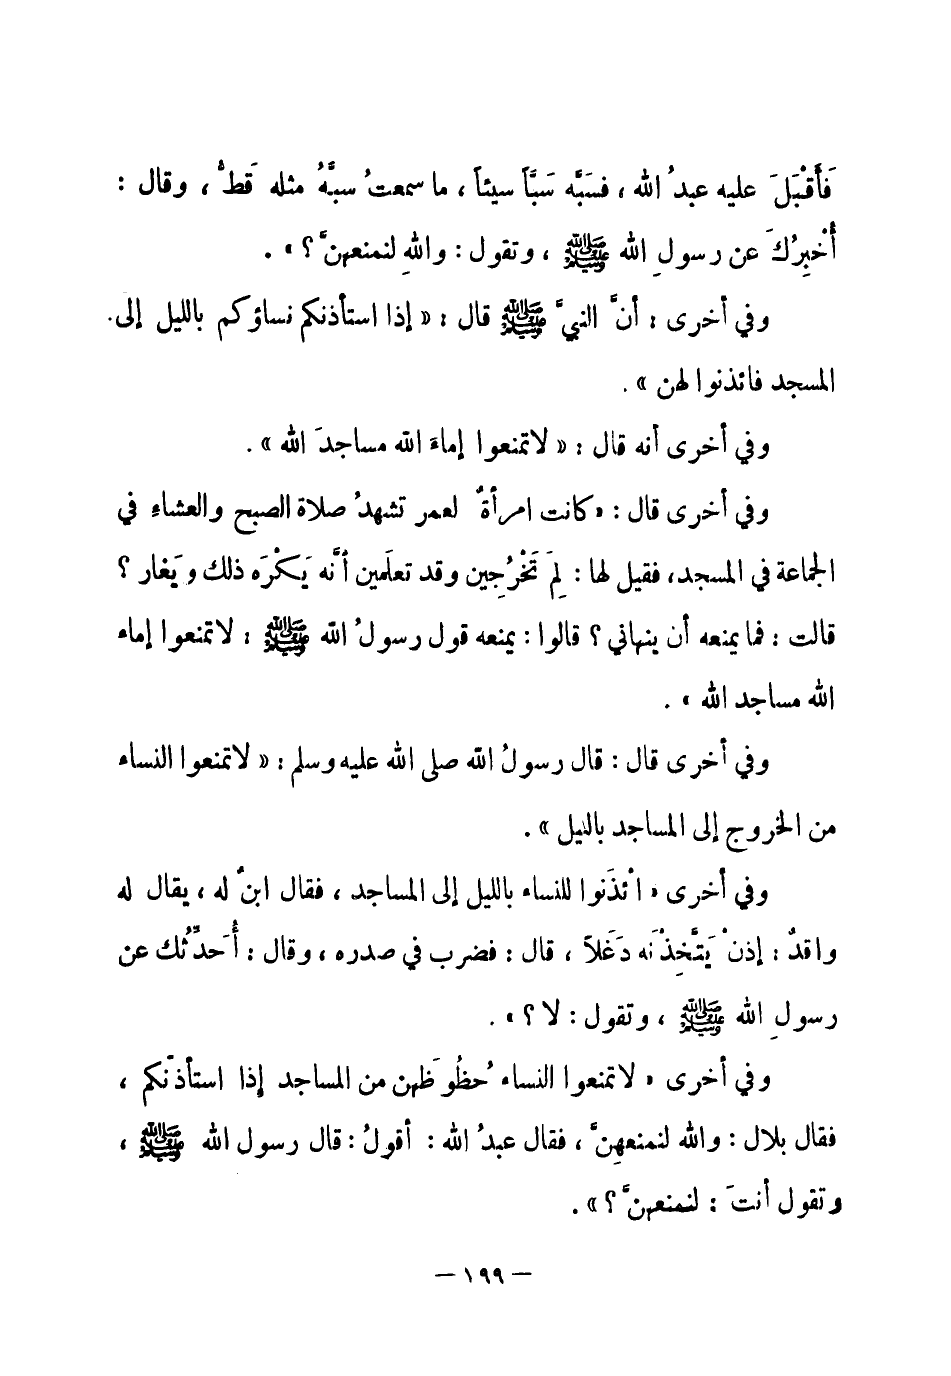 فَأَقْبَلَ عليه عبدُ الله ، فسَبَّه سَبَّاً سيئاً ، ما سمعتُ سبَّهُ مثله قَطُّ ، وقال :
أُخْبِرُكَ عن رسولِ الله ﷺ ، وتقول : واللهِ لنمنعهنَّ ؟ » .
وفي أخرى : أنَّ النبيَّ ﷺ قال : « إذا استأذنكم نساؤكم بالليل إلى
المسجد فائذنوا لهن » .
وفي أخرى أنه قال : « لاتمنعوا إماءَ الله مساجدَ الله » .
وفي أخرى قال : «كانت امرأةٌ لعمر تشهدُ صلاة الصبح والعشاءِ في
الجماعة في المسجد، فقيل لها : لِمَ تَخْرُجِين وقد تعلَمين أنَّه يَكْرَه ذلك ويَغار ؟
قالت : فما يمنعه أن ينهاني ؟ قالوا : يمنعه قول رسولُ الله ﷺ : لاتمنعوا إماء
الله مساجد الله » .
وفي أخرى قال : قال رسولُ الله صلى الله عليه وسلم : « لاتمنعوا النساء
من الخروج إلى المساجد بالليل » .
وفي أخرى « ائذَنوا للنساء بالليل إلى المساجد ، فقال ابنٌ له ، يقال له
واقدٌ : إذنْ يَتَّخِذْنَه دَغَلاً ، قال : فضرب في صدره ، وقال : أُحَدِّثُك عن
رسولِ الله ﷺ ، وتقول : لا ؟ » .
وفي أخرى « لاتمنعوا النساء حُظُوظَهن من المساجد إذا استأذنَّكم ،
فقال بلال : والله لنمنعهنَّ ، فقال عبدُ الله : أقولُ : قال رسول الله ﷺ ،
وتقول أنتَ : لنمنعهنَّ ؟ » .
— ١٩٩ —